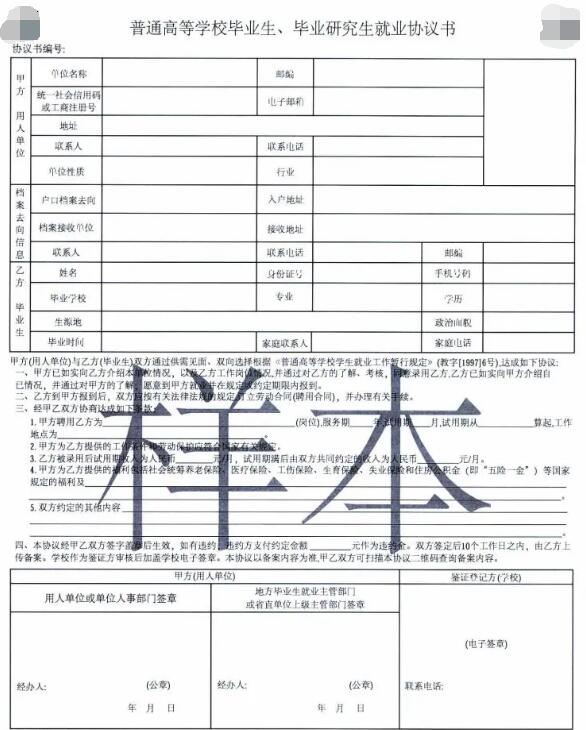 普通高等学校毕业生、毕业研究生就业协议书
协议书编号:
甲方 用人单位
单位名称 邮编
统一社会信用码或工商注册号 电子邮箱
地址
联系人 联系电话
单位性质 行业
档案去向信息
户口档案去向 入户地址
档案接收单位 接收地址
联系人 联系电话 邮编
乙方 毕业生
姓名 身份证号 手机号码
毕业学校 专业 学历
生源地 政治面貌
毕业时间 家庭联系人 家庭电话
甲方(用人单位)与乙方(毕业生)双方通过供需见面、双向选择根据《普通高等学校学生就业工作暂行规定》(教字[1997]6号),达成如下协议:
一、甲方已如实向乙方介绍本单位情况,以及乙方工作岗位情况,并通过对乙方的了解、考核,同意录用乙方,乙方已如实向甲方介绍自
己情况,并通过对甲方的了解,愿意到甲方就业并在规定或约定期限内报到。
二、乙方到甲方报到后,双方应按有关法律法规的规定订立劳动合同(聘用合同),并办理有关手续。
三、经甲乙双方协商达成如下条款:
1.甲方聘用乙方为 (岗位),服务期 年,试用期 月,试用期从 算起,工作
地点为
2.甲方为乙方提供的工作条件和劳动保护应符合国家有关规定。
3.乙方被录用后试用期收入为人民币 元/月,试用期满后由双方共同约定的收入为人民币 元/月。
4.甲方为乙方提供的福利包括社会统筹养老保险、医疗保险、工伤保险、生育保险、失业保险和住房公积金(即“五险一金”)等国家
规定的福利及
5.双方约定的其他内容
四、本协议经甲乙双方签字盖章后生效,如有违约,违约方支付约定金额 元作为违约金。双方签定后10个工作日之内,由乙方上
传备案。学校作为鉴证方审核后加盖学校电子签章。本协议以备案内容为准,甲乙双方可扫描本协议二维码查询备案内容。
样本
甲方(用人单位) 鉴证登记方(学校)
用人单位或单位人事部门签章
地方毕业生就业主管部门
或省直单位上级主管部门签章
(电子签章)
经办人: (公章) 经办人: (公章) 联系电话:
年 月 日 年 月 日